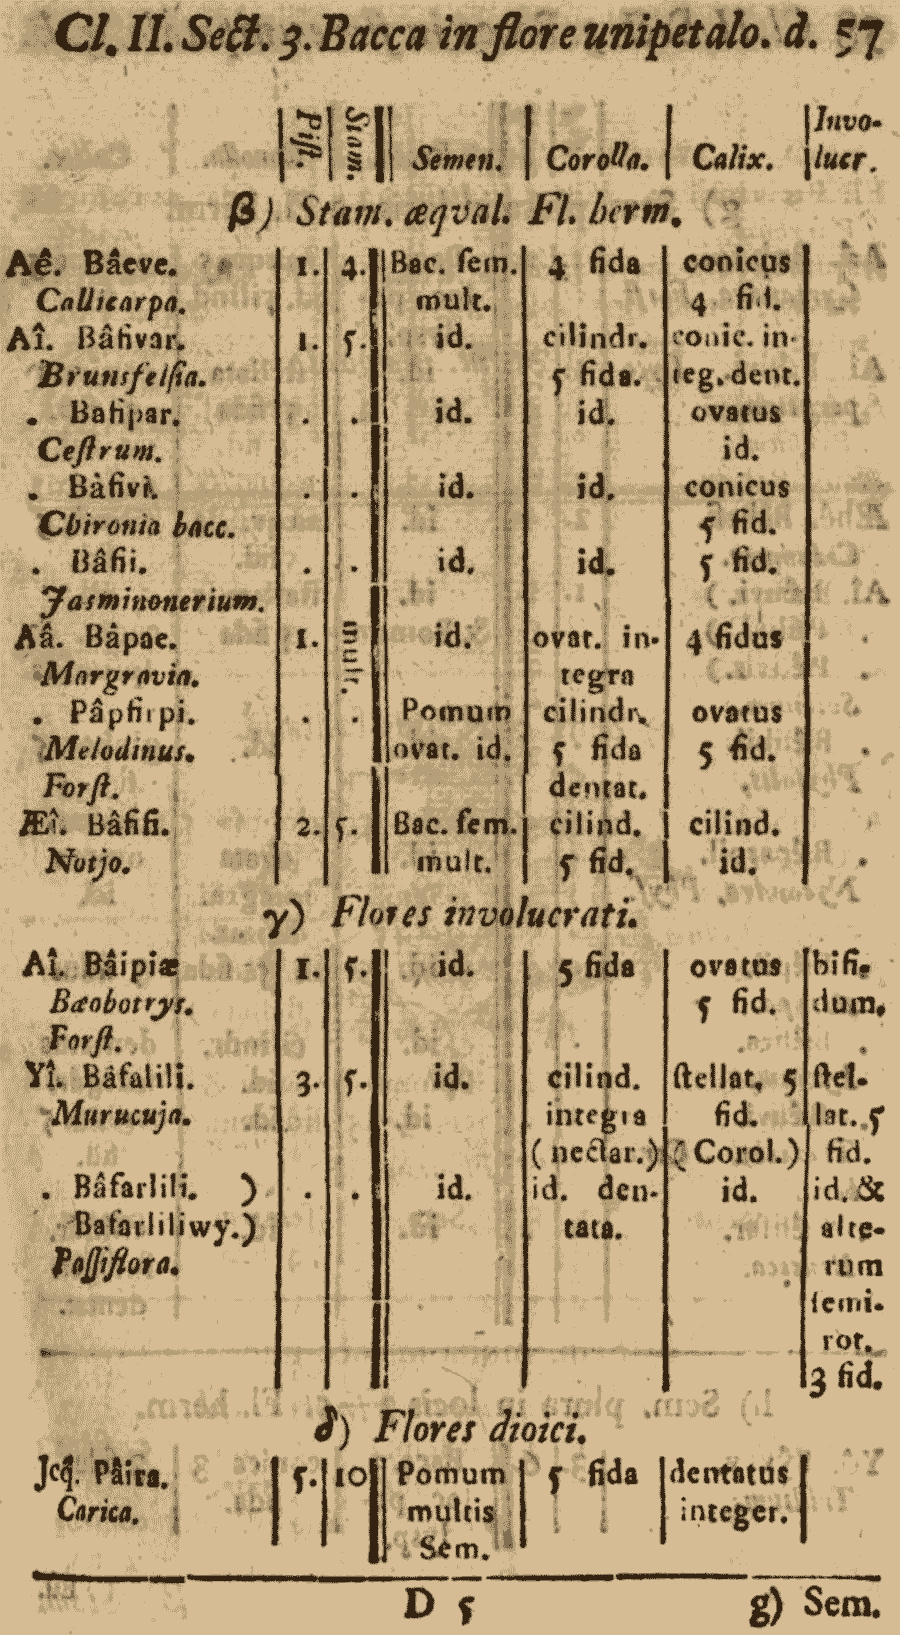 Cl. II. Sect. 3. Bacca in flore unipetalo. d. 57
Pist. Stam. Semen. Corolla. Calix. Invo-
lucr.
β) Stam. æqval. Fl. herm.
Aê. Bâeve. 1. 4. Bac. ſem. 4 fida conicus
Callicarpa. mult. 4 fid.
Aî. Bâſivar. 1. 5. id. cilindr. conic. in-
Brunsfelſia. 5 fida. teg. dent.
. Baſipar. . . id. id. ovatus
Ceſtrum. id.
. Bâſivi. . . id. id. conicus
Chironia bacc. 5 fid.
. Bâſii. . . id. id. 5 fid.
Jasminonerium.
Aâ. Bâpae. 1. mult. id. ovat. in- 4 fidus
Margravia. tegra
. Pâpſirpi. . . Pomum cilindr. ovatus
Melodinus. ovat. id. 5 fida 5 fid.
Forſt. dentat.
Æî. Bâſiſi. 2. 5. Bac. ſem. cilind. cilind.
Notjo. mult. 5 fid. id.
γ) Flores involucrati.
Aî. Bâipiæ 1. 5. id. 5 fida ovatus bifi-
Bæobotrys. 5 fid. dum.
Forſt.
Yî. Bâfalili. 3. 5. id. cilind. ſtellat. 5 ſtel-
Murucuja. integra fid. lat. 5
(nectar.) (Corol.) fid.
. Bâfarlili. ) . . id. id. den- id. id. &
Bafarliliwy.) tata. alte-
Paſſiflora. rum
ſemi-
rot.
3 fid.
δ) Flores dioici.
Jcq. Pâira. 5. 10 Pomum 5 fida dentatus
Carica. multis integer.
Sem.
D 5 g) Sem.